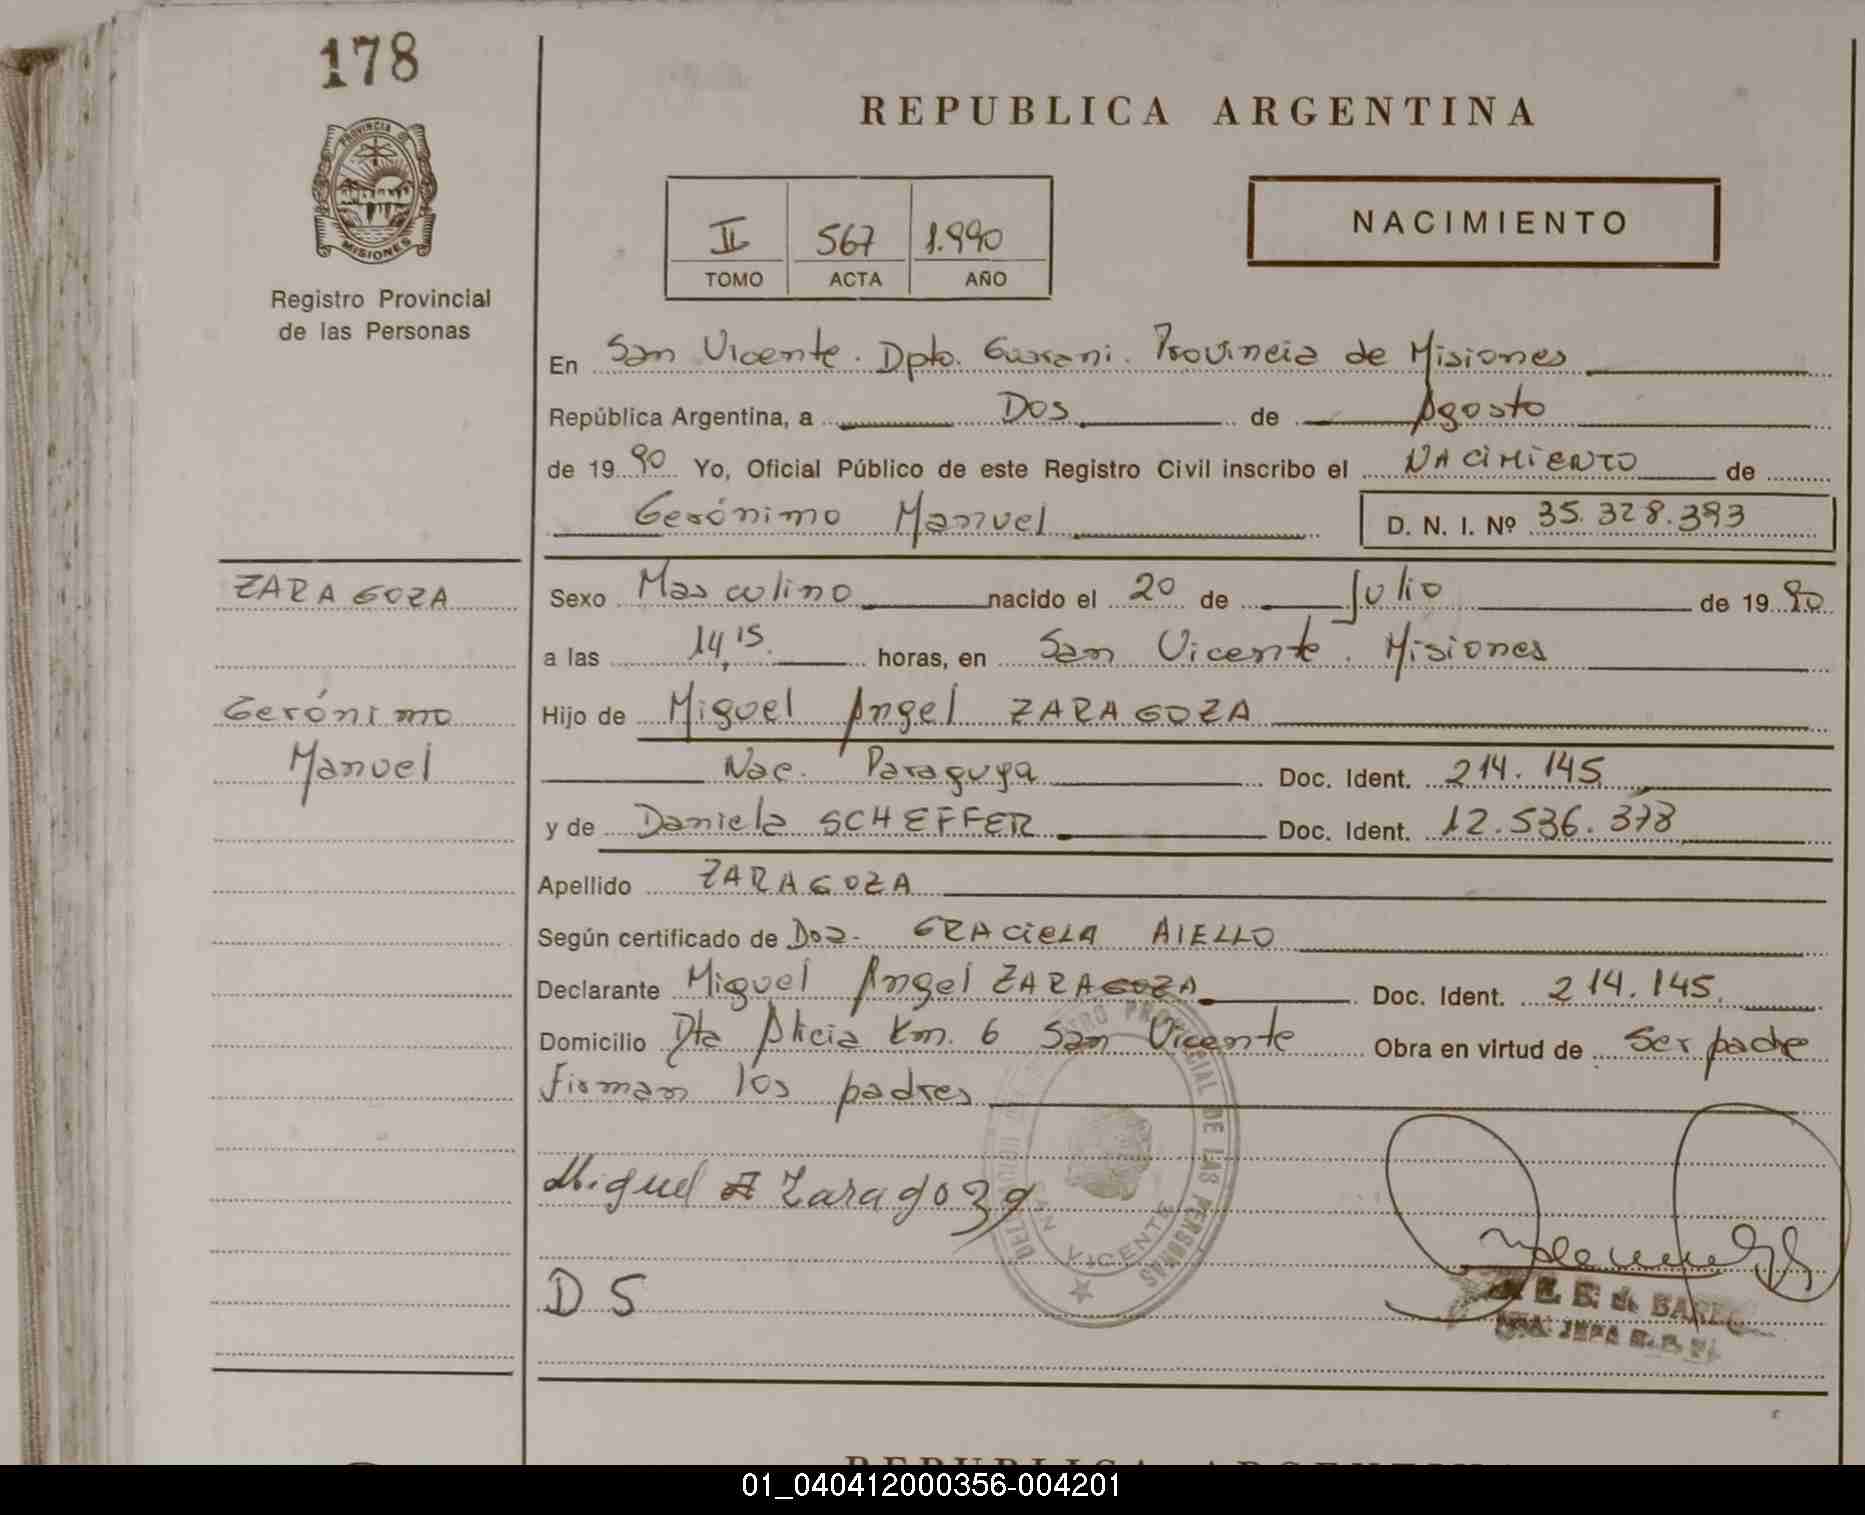 178
REPUBLICA ARGENTINA
PROVINCIA DE
MISIONES
Registro Provincial
de las Personas
II 567 1.990
TOMO ACTA AÑO
NACIMIENTO
En San Vicente. Dpto. Guarani. Provincia de Misiones
República Argentina, a Dos de Agosto
de 19 90 Yo, Oficial Público de este Registro Civil inscribo el NACIMIENTO de
Gerónimo Manuel D. N. I. Nº 35.328.393
ZARAGOZA
Gerónimo
Manuel
Sexo Masculino nacido el 20 de Julio de 19 90
a las 14,15. horas, en San Vicente. Misiones
Hijo de Miguel Angel ZARAGOZA
Nac. Paraguya Doc. Ident. 214.145
y de Daniela SCHEFFER Doc. Ident. 12.536.378
Apellido ZARAGOZA
Según certificado de Dra. GRACIELA AIELLO
Declarante Miguel Angel ZARAGOZA Doc. Ident. 214.145.
Domicilio Dta Alicia Km. 6 San Vicente Obra en virtud de Ser padre
Firman los padres
Miguel A Zaragoza
PROVINCIAL DE LAS PERSONAS
SAN VICENTE
D S
JEFA
REPUBLICA ARGENTINA
01_040412000356-004201